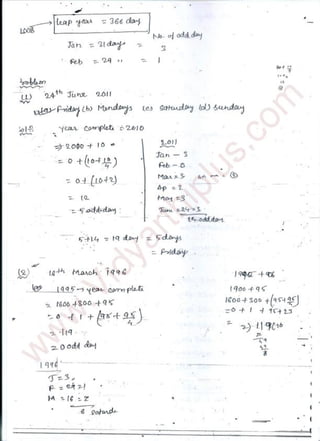 Leap year = 366 day
2008
No. of odd day
Jan = 31 days = 3
Feb = 29 " = 1
Problem
(1) 24th June 2011
(a) Friday (b) Monday (c) Saturday (d) Sunday
Sol: year complete = 2010
⇒ 2000 + 10
= 0 + (10+10/4)
= 0 + (10+2)
= 12
= 5 odd day
2011
Jan - 3
Feb - 0
Mar = 3
Ap = 2
May = 3
Jun = 24 = 3
14 odd day
5+14 = 19 day = 5 days
= Friday
(2) 16th March 1996
1995 → year complete
= 1600 + 300 + 95
= 0 + 1 + (95 + 95/4)
= 119
= 0 odd day
1996
J = 3
F = 29 = 1
M = 16 = 2
6 Saturda
1900 + 95
1600 + 300 + (95+95/4)
= 0 + 1 + 95 + 23